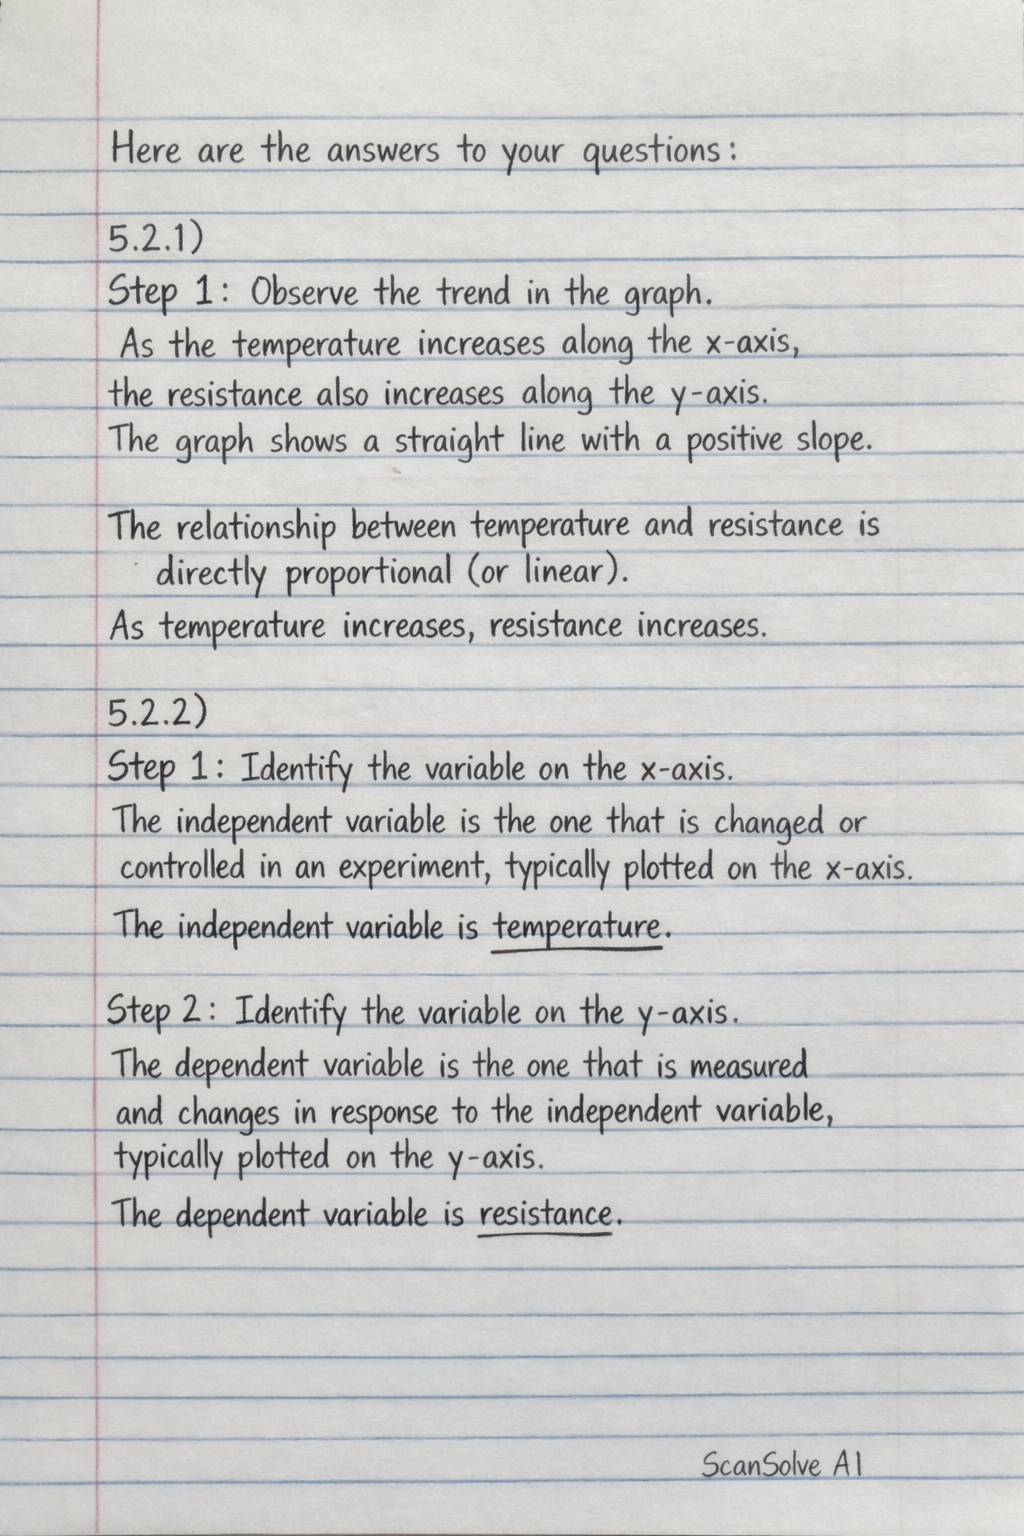 Here are the answers to your questions:
5.2.1)
Step 1: Observe the trend in the graph.
As the temperature increases along the x-axis,
the resistance also increases along the y-axis.
The graph shows a straight line with a positive slope.
The relationship between temperature and resistance is
directly proportional (or linear).
As temperature increases, resistance increases.
5.2.2)
Step 1: Identify the variable on the x-axis.
The independent variable is the one that is changed or
controlled in an experiment, typically plotted on the x-axis.
The independent variable is temperature.
Step 2: Identify the variable on the y-axis.
The dependent variable is the one that is measured
and changes in response to the independent variable,
typically plotted on the y-axis.
The dependent variable is resistance.
ScanSolve AI